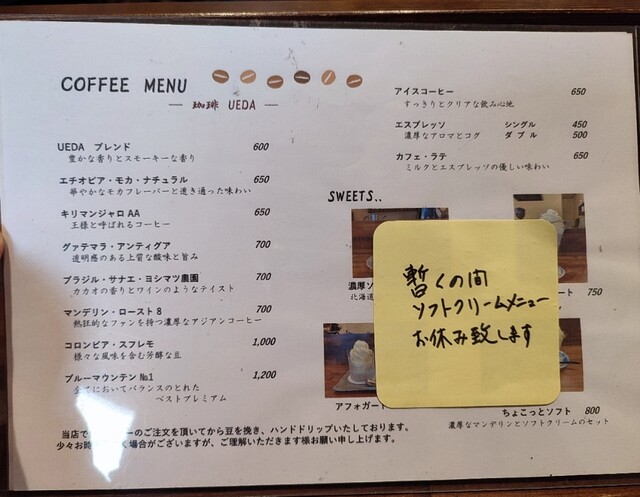 COFFEE MENU
珈琲 UEDA
UEDA ブレンド 600
豊かな香りとスモーキーな香り
エチオピア・モカ・ナチュラル 650
華やかなモカフレーバーと透き通った味わい
キリマンジャロ AA 650
王様と呼ばれるコーヒー
グァテマラ・アンティグア 700
透明感のある上質な酸味と旨み
ブラジル・サナエ・ヨシマツ農園 700
カカオの香りとワインのようなテイスト
マンデリン・ロースト8 700
熱狂的なファンを持つ濃厚なアジアンコーヒー
コロンビア・スプレモ 1,000
様々な風味を含む芳醇な豆
ブルーマウンテン №1 1,200
全てにおいてバランスのとれた
ベストプレミアム
当店で ーのご注文を頂いてから豆を挽き、ハンドドリップいたしております。
少々お時 く場合がございますが、ご理解いただきます様お願い申し上げます。
アイスコーヒー 650
すっきりとクリアな飲み心地
エスプレッソ シングル 450
濃厚なアロマとコグ ダブル 500
カフェ・ラテ 650
ミルクとエスプレッソの優しい味わい
SWEETS..
濃厚ソ
北海道
ート 750
暫くの間
ソフトクリームメニュー
お休み致します
アフォガート
ちょこっとソフト 800
濃厚なマンデリンとソフトクリームのセット